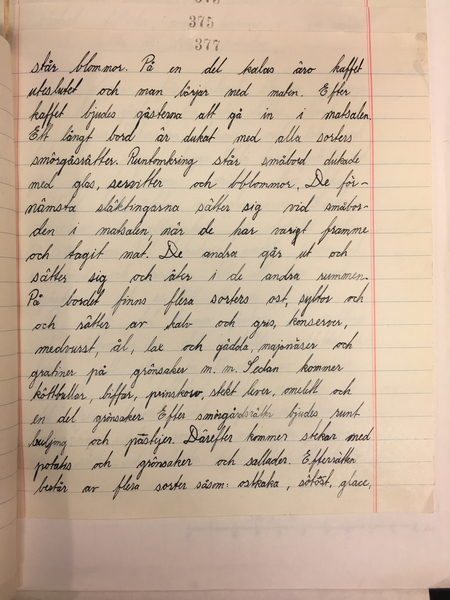 375
377
står blommor. På en del kalas äro kaffet
uteslutet och man börjar med maten. Efter
kaffet bjudes gästerna att gå in i matsalen.
Ett långt bord är dukat med alla sorters
smörgåsrätter. Runtomkring står småbord dukade
med glas, servitter och bblommor. De för-
nämsta släktingarna sätter sig vid småbor-
den i matsalen när de har varit framme
och tagit mat. De andra går ut och
sätter sig och äter i de andra rummen.
På bordet finns flera sorters ost, syltor och
och rätter av kalv och gris, konserver,
medvurst, ål, lax och gädda, majonäser och
gratiner på grönsaker m. m. Sedan kommer
köttbullar, biffar, prinskorv, stekt lever, omelett och
en del grönsaker Efter bjudes runt
buljong och pastejer. Därefter kommer stekar med
potates och grönsaker och sallader. Efterrätten
består av flera sorter såsom: ostkaka, sötost, glace,